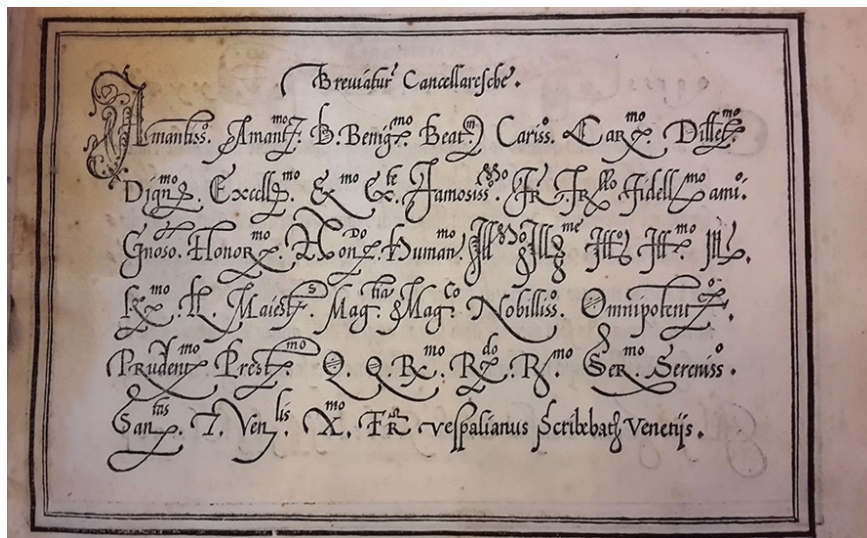 Breviatur Cancellaresche.
Amantiss.o Amant.mo B. Benig.mo Beat.m Cariss.o Car.mo Dillet.mo
Dign.mo Excell.mo Ex.mo Ex.te Famosiss.mo Fr. Fr.llo Fidell.mo ami.o
Gnoso. Honor.mo Hon.do Human.mo Ill.mo Ill.me Ill.o Ill.mo Ill.
K.mo Maiest.s Mag.tia Mag.co Nobilliss.o Omnipotent
Prudent.mo Prest.mo Q. Q. R.mo R.do R.mo Ser.mo Sereniss.o
San.tas T. Ven.lis X.mo Fr. vespalianus Scribebat Venetijs.